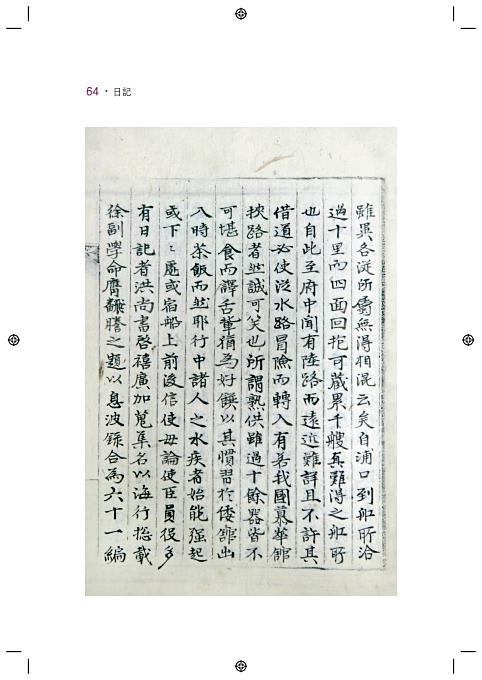 64 · 日記
雖異各從所需無得相混云矣自浦口到船所洽
過十里而四面回抱可藏累千艘真難得之船所
也自此至府中聞有陸路而遠近難詳且不許其
借道必使泛水路冒險而轉入有若我國慕華館
挾路者然誠可笑也所謂熟供雖過十餘器皆不
可堪食而譯舌輩猶為好饌以其慣習於倭館出
入時茶飯而然耶行中諸人之水疾者始能强起
或下之處或宿船上前後信使毋論使臣員役多
有日記者洪尚書啓禧廣加蒐集名以海行摠載
徐副學命膺飜謄之題以息波錄合為六十一編